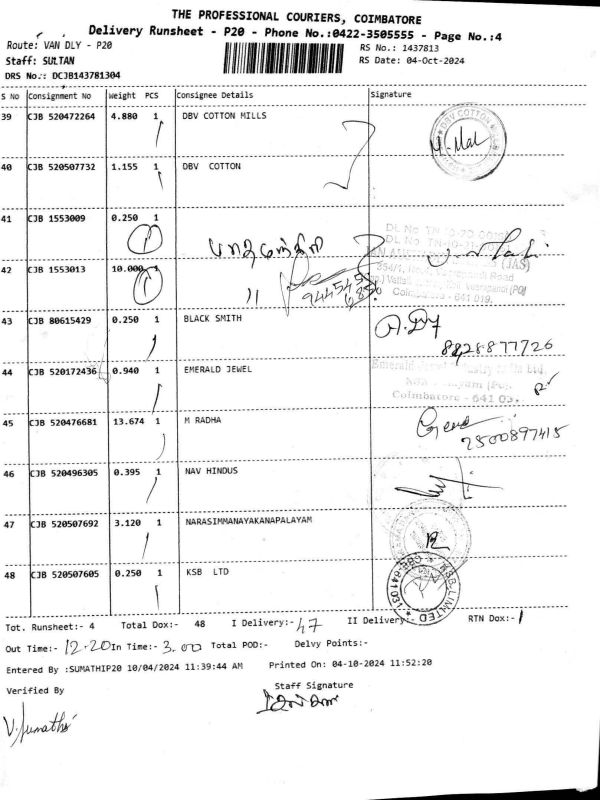 THE PROFESSIONAL COURIERS, COIMBATORE
Delivery Runsheet - P20 - Phone No.:0422-3505555 - Page No.:4
Route: VAN DLY - P20
RS No.: 1437813
Staff: SULTAN
RS Date: 04-Oct-2024
DRS No.: DCJB143781304
S No Consignment No Weight PCS Consignee Details Signature
39 CJB 520472264 4.880 1 DBV COTTON MILLS
40 CJB 520507732 1.155 1 DBV COTTON
41 CJB 1553009 0.250 1
42 CJB 1553013 10.000 1 "
43 CJB 80615429 0.250 1 BLACK SMITH
8828877726
44 CJB 520172436 0.940 1 EMERALD JEWEL
Coimbatore - 641 03
45 CJB 520476681 13.674 1 M RADHA
2500897415
46 CJB 520496305 0.395 1 NAV HINDUS
47 CJB 520507692 3.120 1 NARASIMMANAYAKANAPALAYAM
48 CJB 520507605 0.250 1 KSB LTD
Tot. Runsheet:- 4 Total Dox:- 48 I Delivery:- 47 II Delivery:- RTN Dox:- 1
Out Time:- 12.20 In Time:- 3.00 Total POD:- Delvy Points:-
Entered By :SUMATHIP20 10/04/2024 11:39:44 AM Printed On: 04-10-2024 11:52:20
Verified By Staff Signature
V. Sumathi